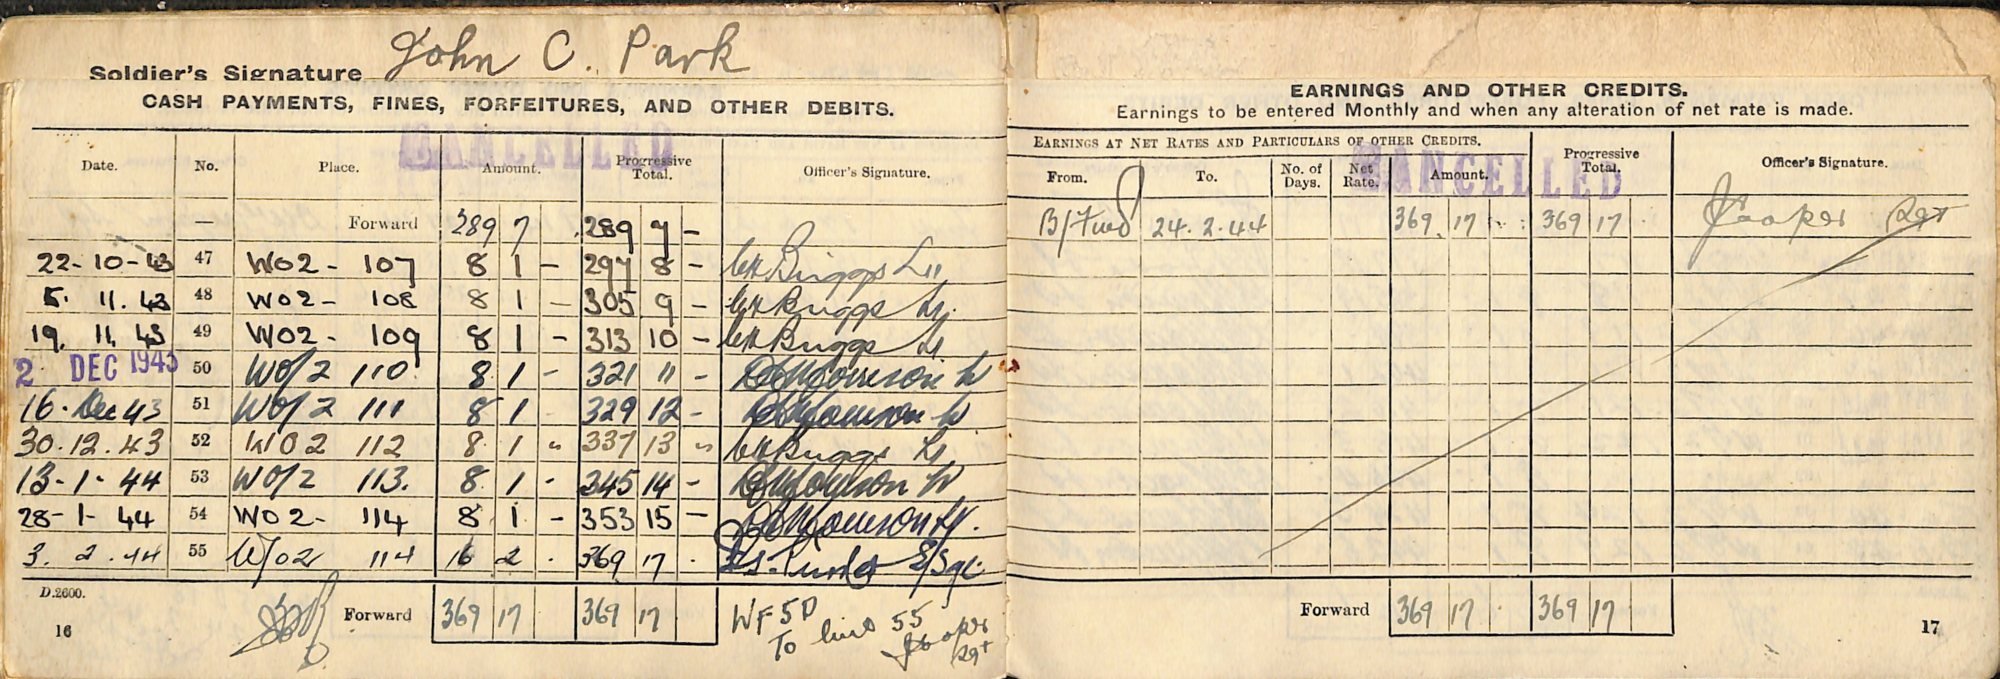 Soldier's Signature John C. Park
CASH PAYMENTS, FINES, FORFEITURES, AND OTHER DEBITS.
CANCELLED
Date. No. Place. Amount. Progressive Total. Officer's Signature.
Forward 289 7 289 7 –
22-10-43 47 WO2 - 107 8 1 – 297 8 – Briggs Lt
5. 11. 43 48 WO2 - 108 8 1 – 305 9 – Briggs Lt.
19. 11. 43 49 WO2 - 109 8 1 – 313 10 – Briggs Lt
2 DEC 1943 50 WO/2 110 8 1 – 321 11 –
16. Dec 43 51 WO/2 111 8 1 329 12 –
30.12.43 52 WO2 112 8 1 " 337 13 " Briggs Lt
13-1-44 53 WO/2 113. 8 1 - 345 14 –
28-1-44 54 WO2 - 114 8 1 – 353 15 –
3. 2. 44 55 W/O2 114 16 2 . 369 17 . S/Sgt
D.2600.
Forward 369 17 369 17 WF5D
To line 55
Cooper
Sgt
16
EARNINGS AND OTHER CREDITS.
Earnings to be entered Monthly and when any alteration of net rate is made.
EARNINGS AT NET RATES AND PARTICULARS OF OTHER CREDITS.
CANCELLED
From. To. No. of Days. Net Rate. Amount. Progressive Total. Officer's Signature.
B/Fwd 24.2.44 369 17 369 17 Cooper Sgt
Forward 369 17 369 17
17